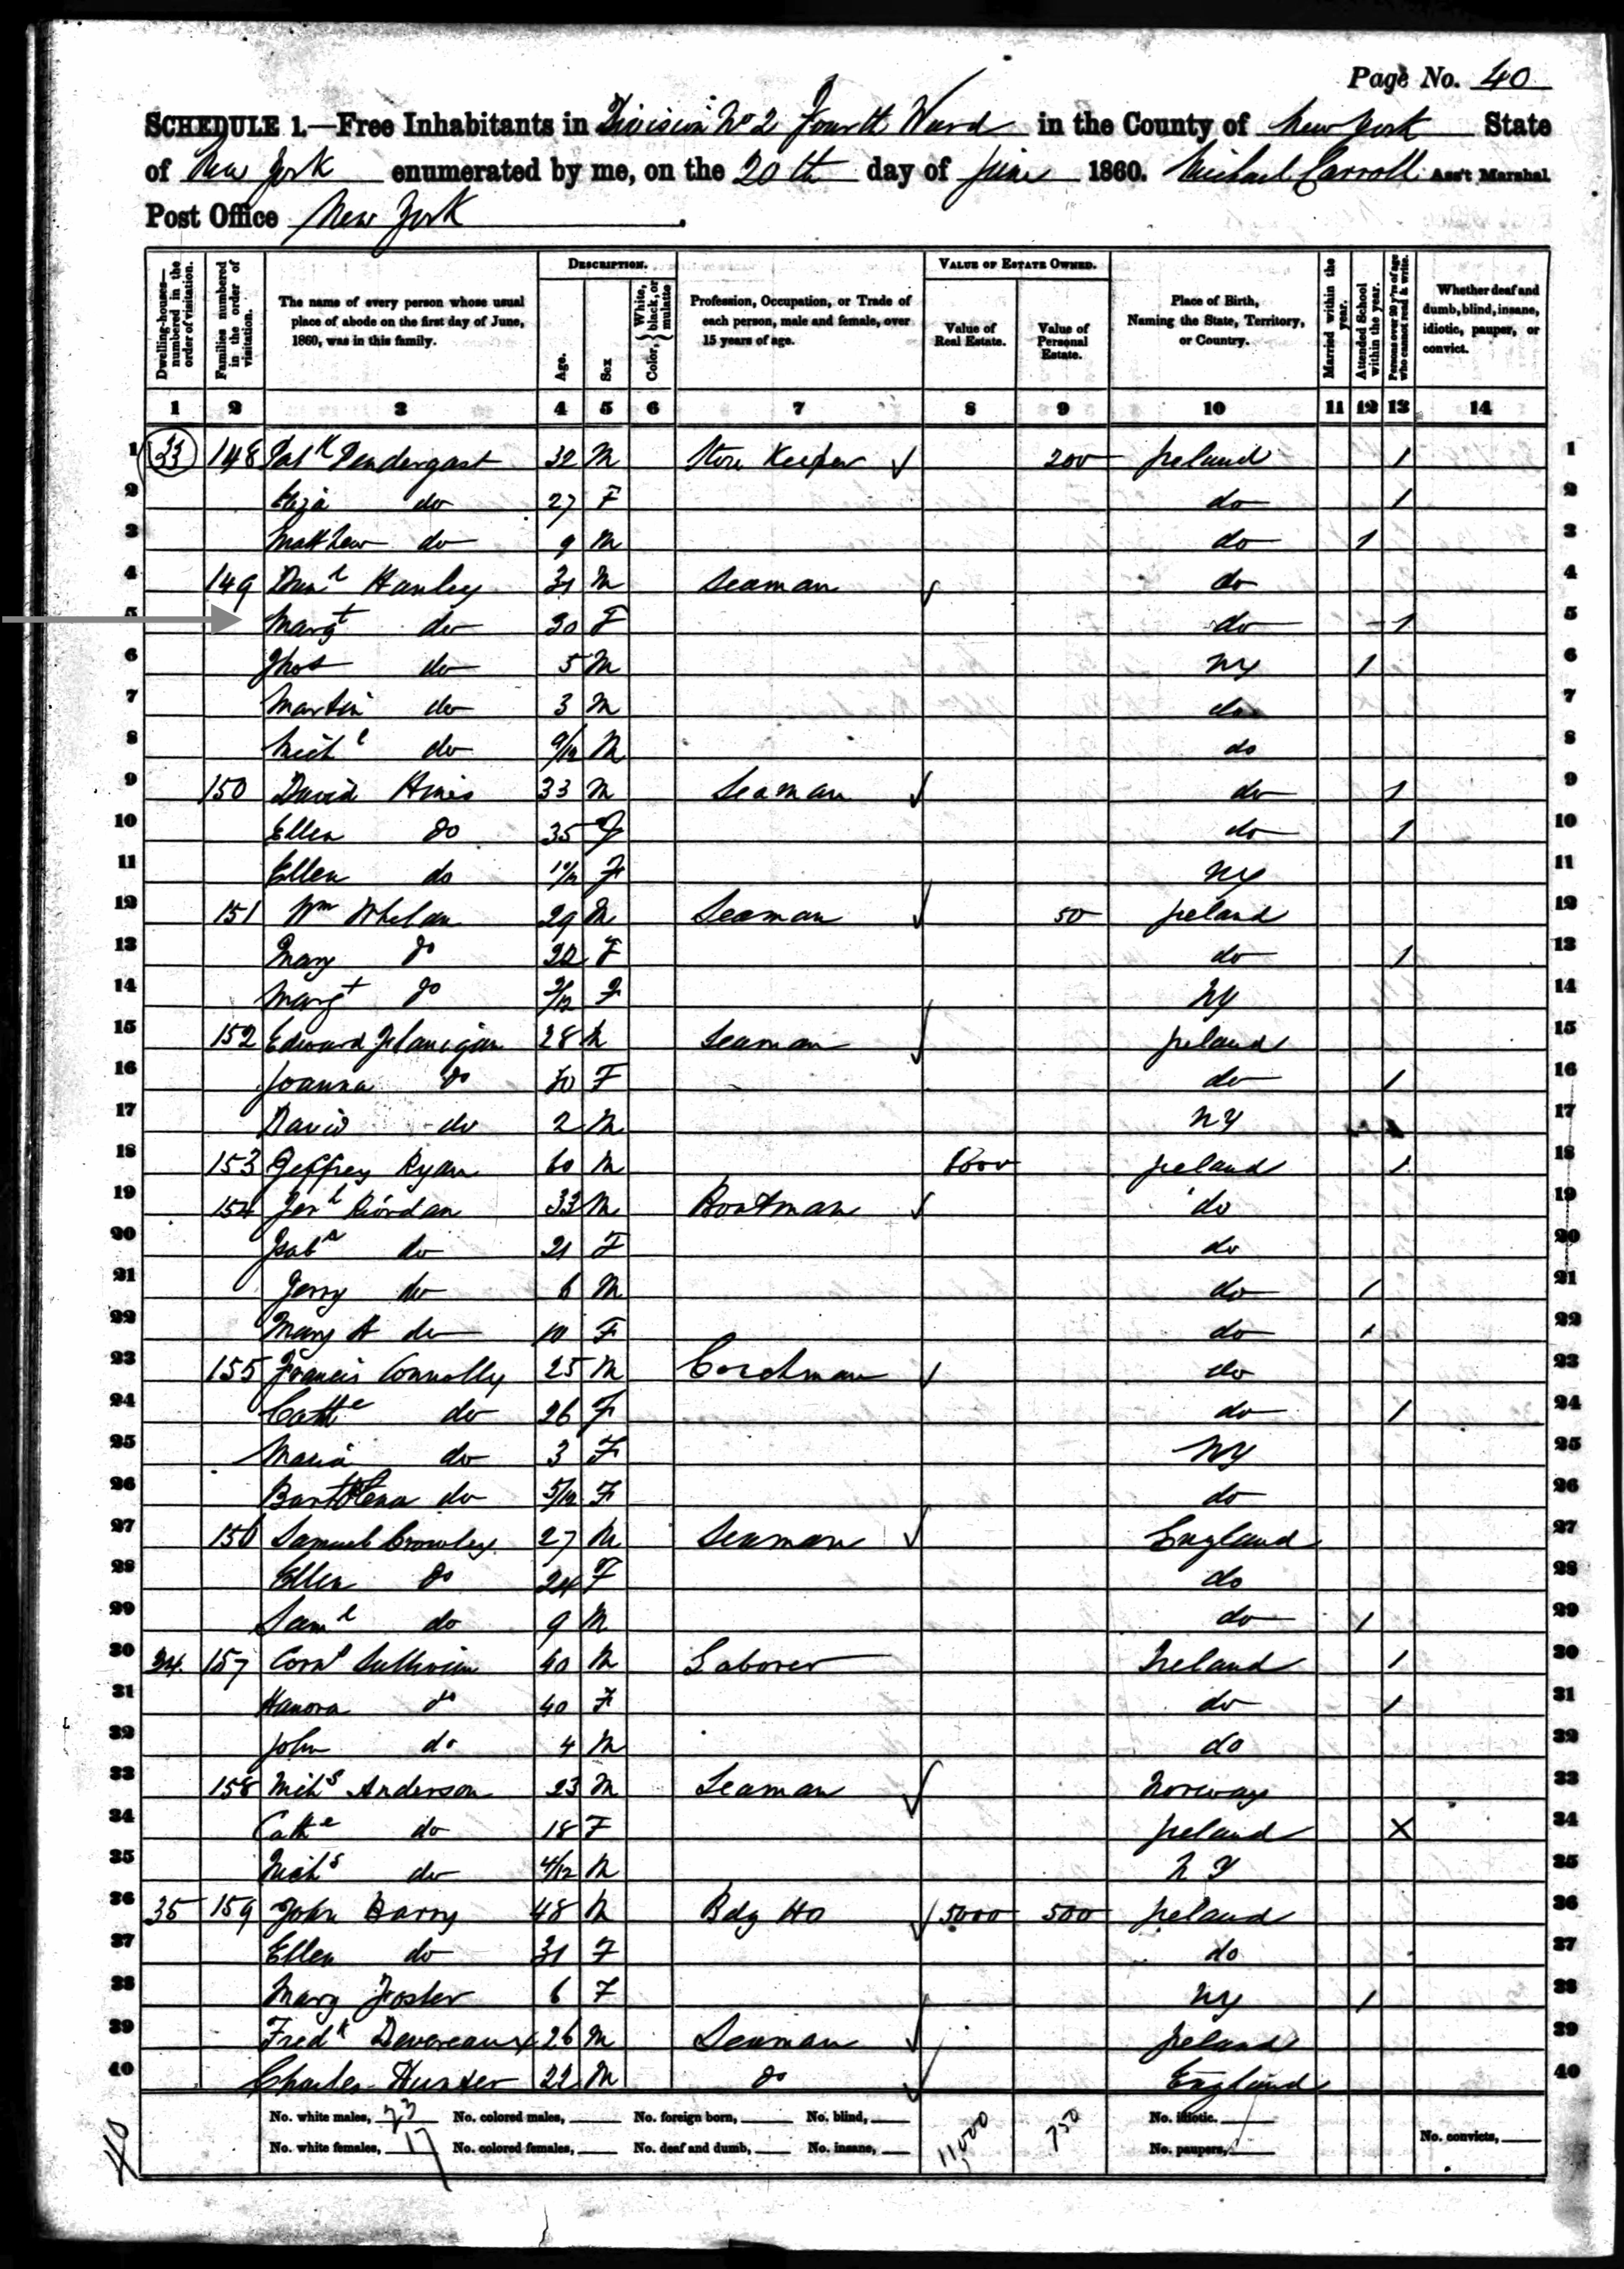 Page No. 40
SCHEDULE 1.—Free Inhabitants in Division No 2 Fourth Ward in the County of New York State
of New York enumerated by me, on the 20th day of June 1860. Michael Carroll Ass't Marshal
Post Office New York.
Dwelling-houses— numbered in the order of visitation.
Families numbered in the order of visitation.
The name of every person whose usual place of abode on the first day of June, 1860, was in this family.
DESCRIPTION.
Age.
Sex
Color, White, black, or mulatto
Profession, Occupation, or Trade of each person, male and female, over 15 years of age.
VALUE OF ESTATE OWNED.
Value of Real Estate.
Value of Personal Estate.
Place of Birth, Naming the State, Territory, or Country.
Married within the year.
Attended School within the year.
Persons over 20 y'rs of age who cannot read & write.
Whether deaf and dumb, blind, insane, idiotic, pauper, or convict.
1 2 3 4 5 6 7 8 9 10 11 12 13 14
1 33 148 Patk Pendergast 32 M Store Keeper 200 Ireland 1 1
2 Eliza do 27 F do 1 2
3 Matthew do 9 M do 1 3
4 149 Danl Hanley 31 M Seaman do 4
5 Margt do 30 F do 1 5
6 Thos do 5 M NY 1 6
7 Martin do 3 M do 7
8 Michl do 9/12 M do 8
9 150 David Hines 33 M Seaman do 1 9
10 Ellen do 35 F do 1 10
11 Ellen do F NY 11
12 151 Wm Whelan 29 M Seaman 50 Ireland 12
13 Mary do 22 F do 1 13
14 Margt do F NY 14
15 152 Edward Flanigan 28 M Seaman Ireland 15
16 Joanna do 30 F do 1 16
17 David do 2 M NY 17
18 153 Geffrey Ryan 60 M Ireland 1 18
19 154 Jerh Riordan 33 M Boatman do 19
20 Isaba do 21 F do 20
21 Jerry do 6 M do 1 21
22 Mary A do 10 F do 1 22
23 155 Francis Connolly 25 M Coachman do 23
24 Cathe do 26 F do 1 24
25 Maria do 3 F NY 25
26 do 5/12 F do 26
27 156 Samuel Crowley 27 M Seaman England 27
28 Ellen do 24 F do 28
29 Saml do 9 M do 1 29
30 34 157 Corns Sullivan 40 M Laborer Ireland 1 30
31 Hanora do 40 F do 1 31
32 John do 4 M do 32
33 158 Nichs Anderson 23 M Seaman Norway 33
34 Cathe do 18 F Ireland X 34
35 Nichs do 4/12 M N Y 35
36 35 159 John Barry 48 M Bdg Ho 5000 500 Ireland 36
37 Ellen do 31 F do 37
38 Mary Foster 6 F NY 1 38
39 Fredk Devereaux 26 M Seaman Ireland 39
40 Charles Hunter 22 M do England 40
No. white males, 23 No. colored males, No. foreign born, No. blind, 11,000 750 No. idiotic.
No. white females, 17 No. colored females, No. deaf and dumb, No. insane, No. paupers, No. convicts,
40